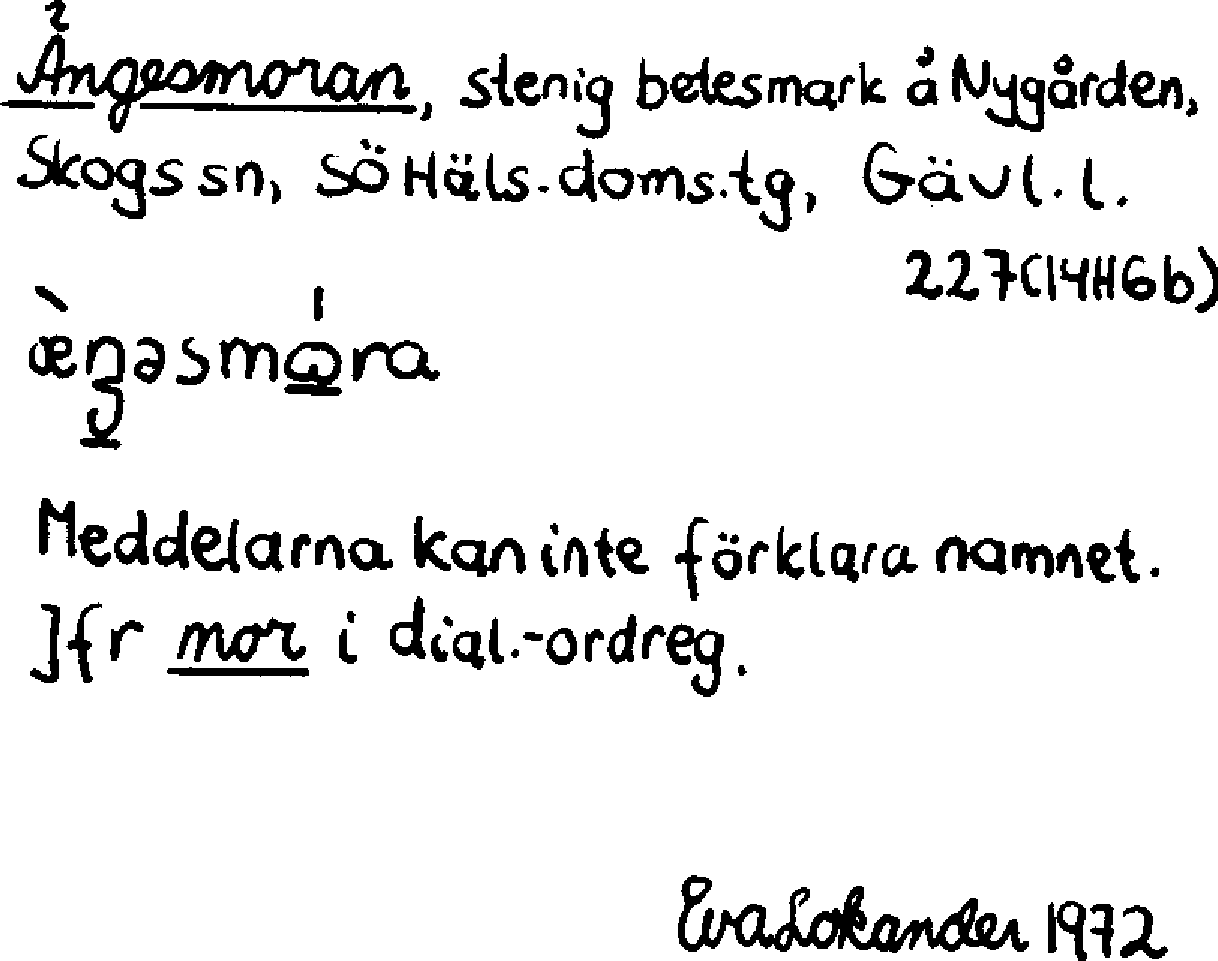 Ångesmoran, stenig betesmark å Nygården,
Skogs sn, SÖ Häls. doms.tg, Gävl. l.
227(14H6b)
Meddelarna kan inte förklara namnet.
Jfr mor i dial.-ordreg.
Eva Lokander 1972